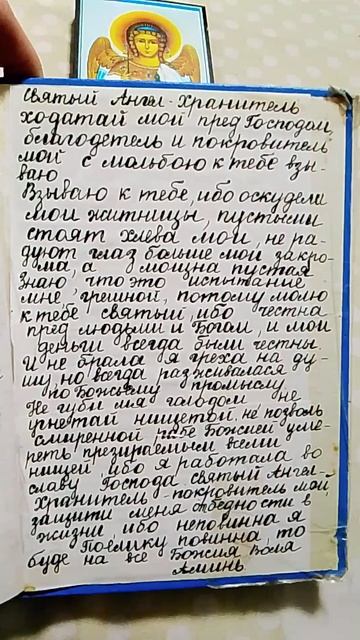 Святый Ангел-Хранитель
ходатай мой пред Господом,
благодетель и покровитель
мой с мольбою к тебе взы-
ваю
Взываю к тебе, ибо оскудели
мои житницы, пустыми
стоят хлева мои, не ра-
дуют глаз больше мои закро-
ма, а мошна пустая
Знаю, что это испытание
мне, грешной, потому молю
к тебе святый, ибо честна
пред людьми и Богом, и мои
деньги всегда были честны.
И не брала я греха на ду-
шу, но всегда разживалася
по Божьему промыслу.
Не губи мя гольдом не
угнетай нищетой, не позволь
смиренной рабе Божией уме-
реть презираемым всеми
нищей, ибо я работала во
славу Господа. святый Ангел-
Хранитель-покровитель мой,
защити меня от бедности в
жизни, ибо неповинна я
Поелику повинна, то
буде на все Божия Воля
Аминь